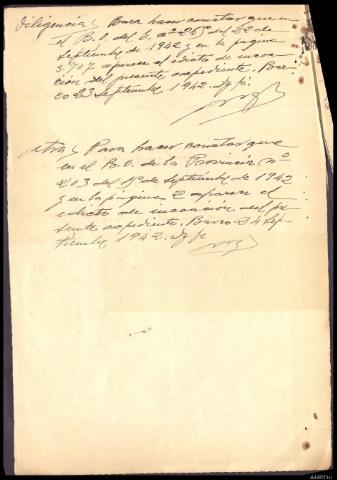 Diligencia; Para hacer constar que en
el B.O. del E. nº 265 del 22 de
Septiembre de 1942 y en la página
3.707 aparece el edicto de incoa-
ción del presente expediente. Bar-
co 23 Septiembre 1942. Doy fé;
otra; Para hacer constar que
en el B.O. de la Provincia nº
203 del 1º de Septiembre de 1942
y en la página 2 aparece el
edicto de incoación del pre
sente expediente. Barco 24 Sep-
tiembre 1942. Doy fé